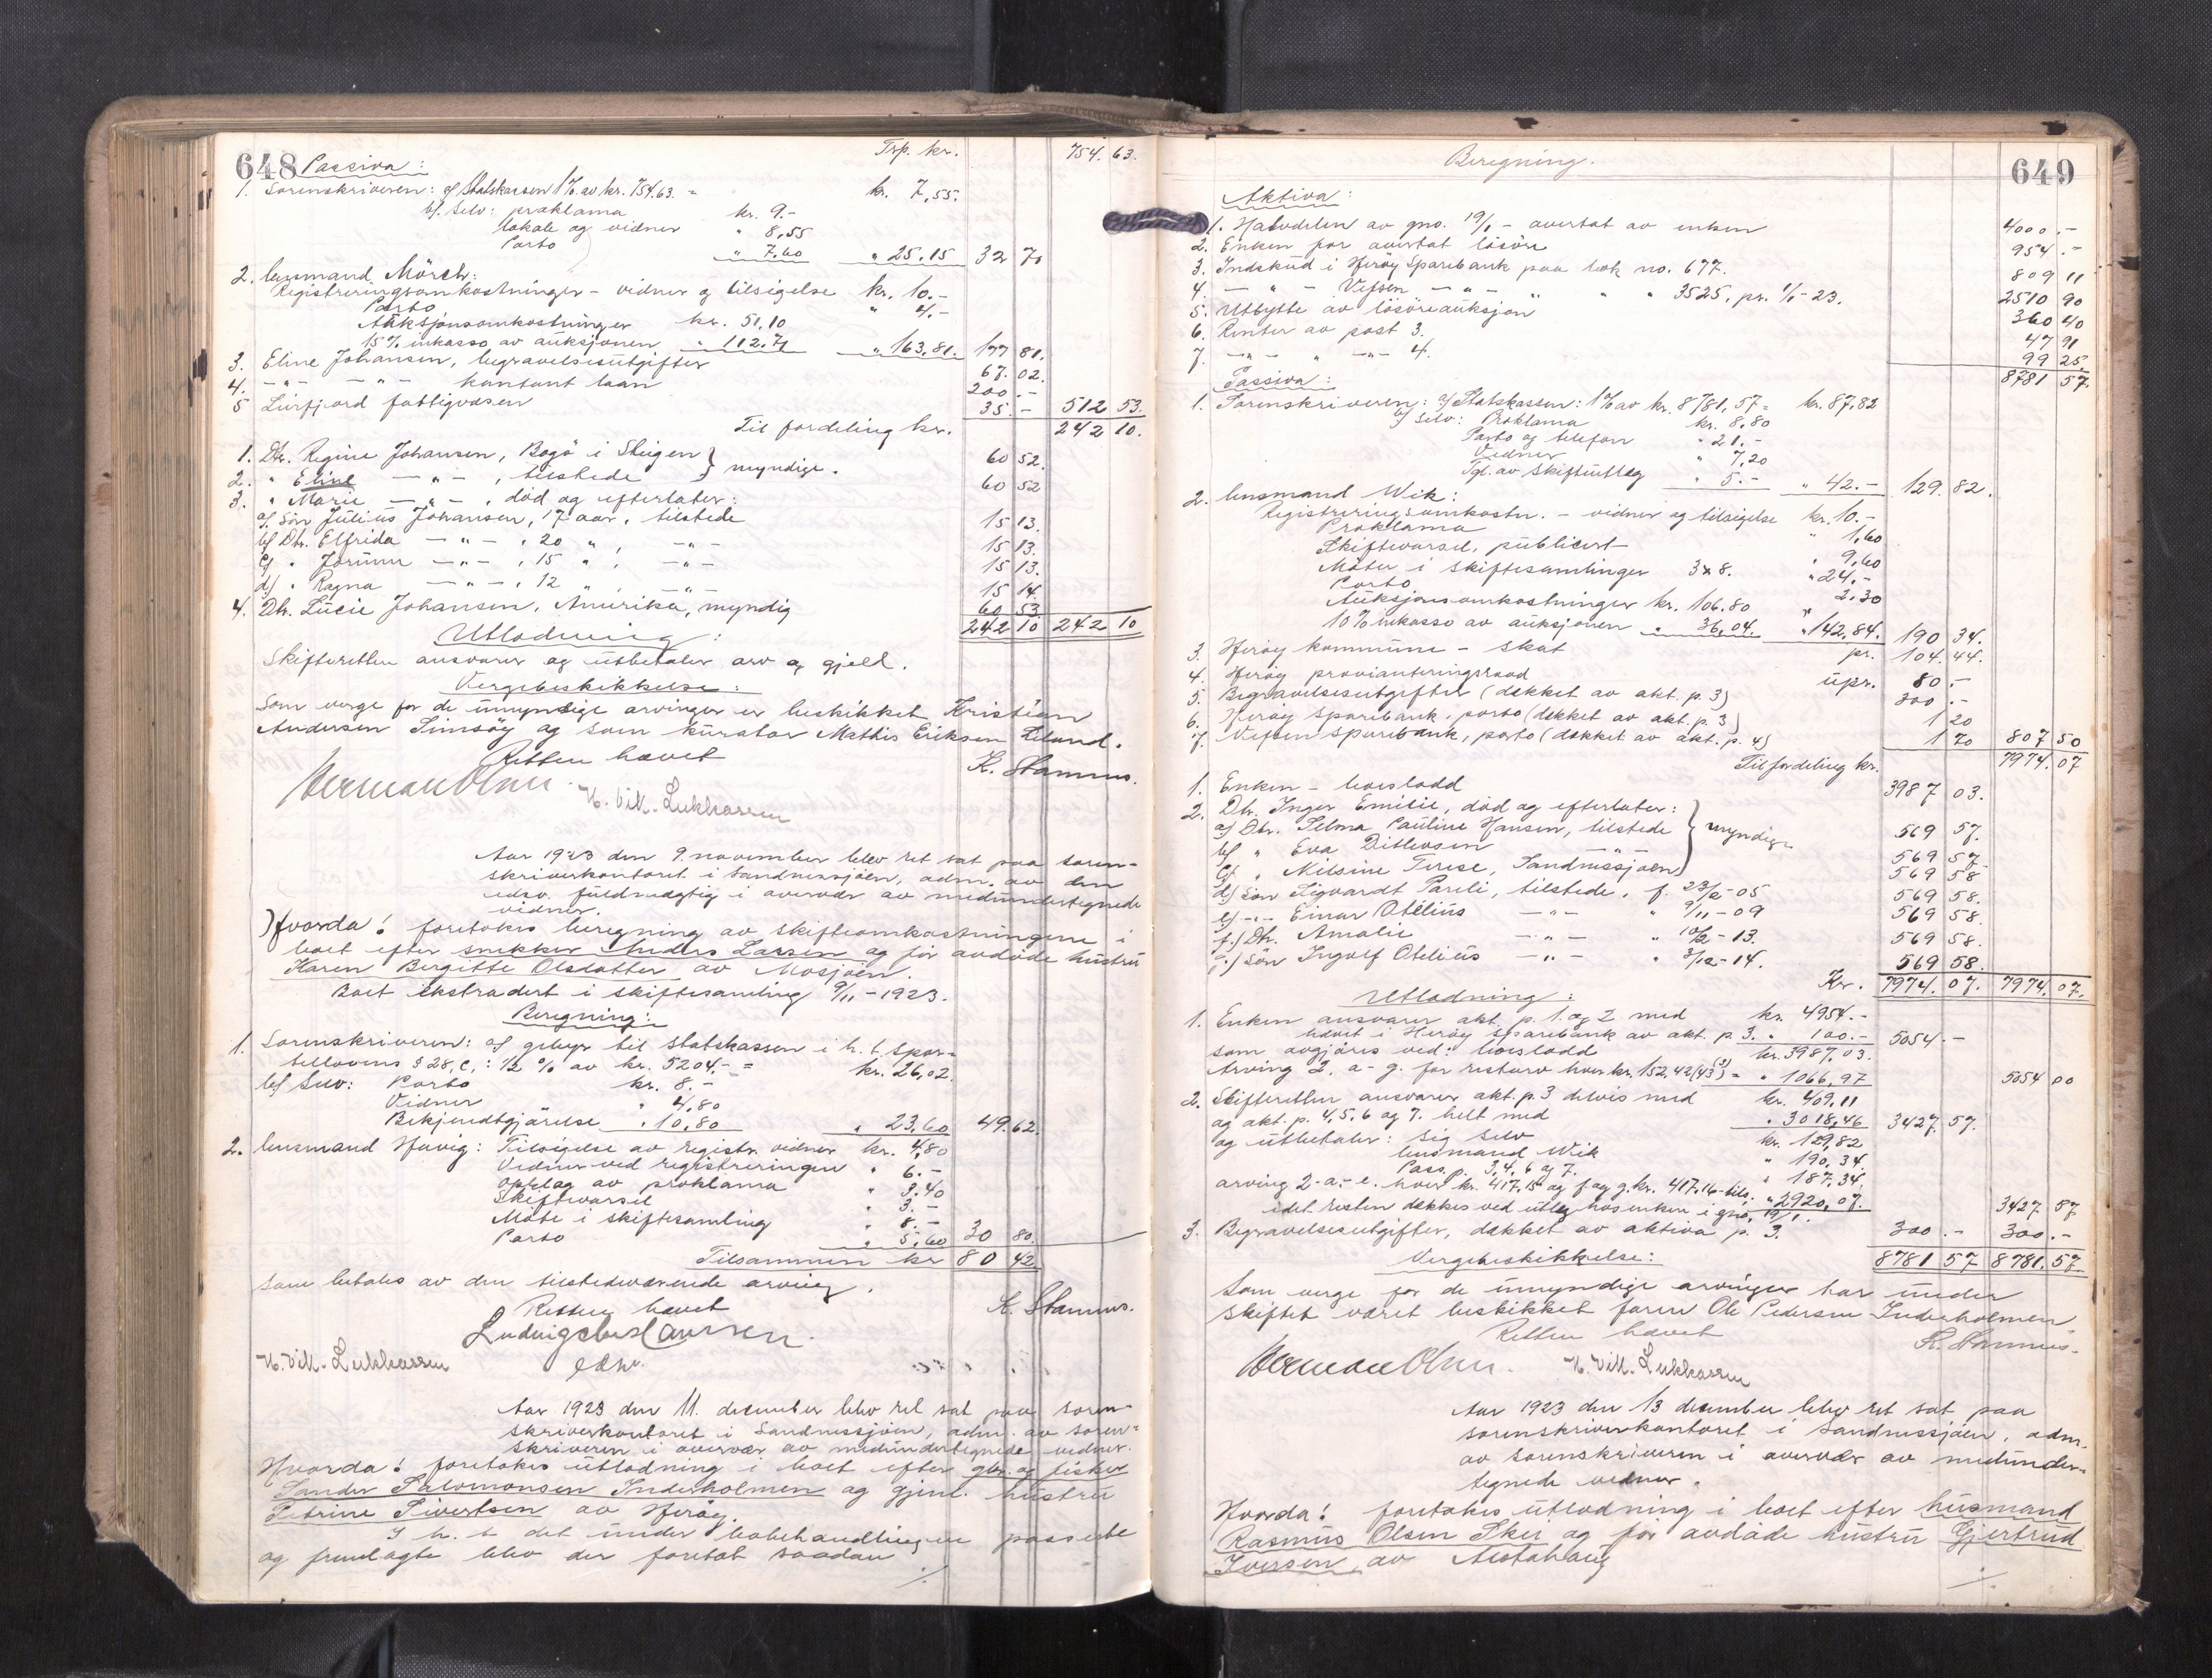 648 Passiva: Trp. kr. 754.63.
1. Sorenskriveren: a/ Statskassen 1% av kr. 754.63. = kr. 7,55.
b/ Selv: proklama kr. 9.-
lokale og vidner " 8,55
Porto " 7.60 " 25.15 32 70
2. lensmand Mörch:
Registreringsomkostninger - vidner og tilsigelse kr. 10.-
Porto " 4.-
Auksjonsomkostninger kr. 51,10
15% inkasso av auksjonen " 112.71 " 163,81. 177 81.
3. Eline Johansen, begravelsesutgifter 67.02.
4. -"- -"- kontant laan 200.-
5 Lurfjord fattigvæsen 35.- 512 53.
Til fordeling kr. 242 10.
1. Dtr. Regine Johansen, Bogö i Steigen } myndige. 60 52.
2. " Eline -"- , tilstede 60 52
3. " Marie -"- , död og efterlater:
a/ Sön Julius Johansen, 17 aar, tilstede 15 13.
b/ Dtr. Elfrida -"- , 20 " , -"- 15 13.
c/ " Jorunn -"- , 15 " , -"- 15 13.
d/ " Ragna -"- , 12 " , -"- 15 14.
4. Dtr. Lucie Johansen, Amerika, myndig 60 53
242 10 242 10
Utlodning:
Skifteretten ansvarer og utbetaler arv og gjeld.
Vergebeskikkelse:
Som verge for de umyndige arvinger er beskikket Kristian
Andersen Simsöy og som kurator Mathis Eriksen
Retten hævet
K. Stamnes.
Herman Olsen N. Vill. Lukkassen
Aar 1923 den 9. november blev ret sat paa soren-
skriverkontoret i Sandnessjöen, adm. av den
edsv. fuldmægtig i overvær av medundertegnede
vidner.
Hvorda! foretokes beregning av skifteomkostningene i
boet efter snekker Anders Larsen og för avdöde hustru
Karen Bergitte Olsdatter av Mosjöen.
Boet ekstradert i skiftesamling 9/11-1923.
Beregning:
1. Sorenskriveren: a/ gebyr til statskassen i h. t. spor-
tellovens § 28, c,: 1/2 % av kr. 5204.- = kr. 26,02.
b/ Selv: Porto kr. 8.-
Vidner " 4,80
Bekjendtgjörelse " 10,80 " 23,60 49.62.
2. lensmand Havig: Tilsigelse av registr. vidner kr. 4,80
Vidner ved registreringen " 6.-
Opslag av proklama " 3.40
Skiftevarsel " 3.-
Möte i skiftesamling " 8.-
Porto " 5,60 30 80.
Tilsammen kr 80 42
som betales av den tilstedeværende arving.
Retten hævet K. Stamnes.
Ludvig Laursen.
N. Vill. Lukkassen edsv.
Aar 1923 den 11. desember blev ret sat paa soren-
skriverkontoret i Sandnessjöen, adm. av soren-
skriveren i overvær av medundertegnede vidner.
Hvorda! foretokes utlodning i boet efter gbr. og fisker
Sander Salomonsen Inderholmen og gjenl. hustru
Petrine Sivertsen av Heröy.
I h. t. det under bobehandlingen passerte
og fremlagte blev der foretat saadan
./.
Beregning. 649
Aktiva:
1. Halvdelen av gno. 19/1 - overtat av enken 4000.-
2. Enken for overtat lösöre 954.-
3. Indskud i Heröy Sparebank paa bok no. 677. 809 11
4. -"- " Vefsen -"- " " " 3525, pr. 1/1-23. 2510 90
5. Utbytte av lösöreauksjon 360 40
6. Renter av post 3. 47 91
7. -"- " -"- 4. 99 25.
8781 57.
Passiva:
1. Sorenskriveren: a/ Statskassen: 1% av kr. 8781,57 = kr. 87,82
b/ Selv: Proklama kr. 8,80
Porto og telefon " 21.-
Vidner " 7,20
Tgl. av skifteutlæg " 5.- " 42.- 129.82.
2. lensmand Wik:
Registreringsomkostn. - vidner og tilsigelse kr. 10.-
Proklama " 1,60
Skiftevarsel, publicert " 9,60
Möter i skiftesamlinger 3x8. " 24.-
Porto 2.30
Auksjonsomkostninger kr. 106,80
10% inkasso av auksjonen " 36,04. " 142,84. 190 34.
3. Heröy kommune - skat pr. 104.44.
4. Heröy provianteringsraad upr. 80.-
5. Begravelsesutgifter (dækket av akt. p. 3) 300.-
6. Heröy Sparebank, porto (dækket av akt. p. 3) 1 20
7. Vefsen Sparebank, porto (dækket av akt. p. 4) 1 70 807 50
Til fordeling kr. 7974.07
1. Enken - boeslodd 3987 03.
2. Dtr. Inger Emilie, död og efterlater:
a/ Dtr. Selma Pauline Hansen, tilstede } myndige 569 57.
b/ " Eva Ditlevsen -"- 569 57
c/ " Nilsine Terese, Sandnessjöen 569 58
d/ Sön Sigvardt Pareli, tilstede, f. 23/2-05 569 58.
e/ -"- Einar Otelius -"- " 9/11-09 569 58.
f./ Dtr. Amalie -"- " 10/2-13. 569 58.
g./ Sön Ingolf Otelius -"- " 3/12-14. 569 58.
Kr. 7974.07. 7974.07.
Utlodning:
1. Enken ansvarer akt. p. 1. og 2 med kr. 4954.-
hævet i Heröy sparebank av akt. p. 3. " 100.- 5054.-
som avgjöres ved: boeslodd kr. 3987,03.
Arving 2. a-g. for restarv hver kr. 152,42 (43) (3) = " 1066,97 5054 00
2. Skifteretten ansvarer akt. p. 3 delvis med kr. 409,11
og akt. p. 4, 5, 6 og 7. helt med " 3018,46 3427.57.
og utbetaler: sig selv kr. 129,82
lensmand Wik " 190,34.
Pass. p. 3, 4, 6 og 7. " 187,34.
arving 2-a.- e. hver kr. 417,15 og f og g. kr. 417,16 - tils. " 2920,07.
idet resten dækkes ved utlæg hos enken i gno. 19/1. 3427 57
3. Begravelsesutgifter, dækket av aktiva p. 3. 300.- 300.-
8781 57 8781.57
Vergebeskikkelse:
Som verge for de umyndige arvinger har under
skiftet været beskikket faren Ole Pedersen Inderholmen
Retten hævet K. Stamnes.
Herman Olsen. N. Vill. Lukkassen
Aar 1923 den 13 desember blev ret sat paa
sorenskriverkontoret i Sandnessjöen, adm.
av sorenskriveren i overvær av medunder-
tegnede vidner.
Hvorda! foretokes utlodning i boet efter husmand
Rasmus Olsen Sker og för avdöde hustru Gjertrud
Iversen, av Alstahaug
./.